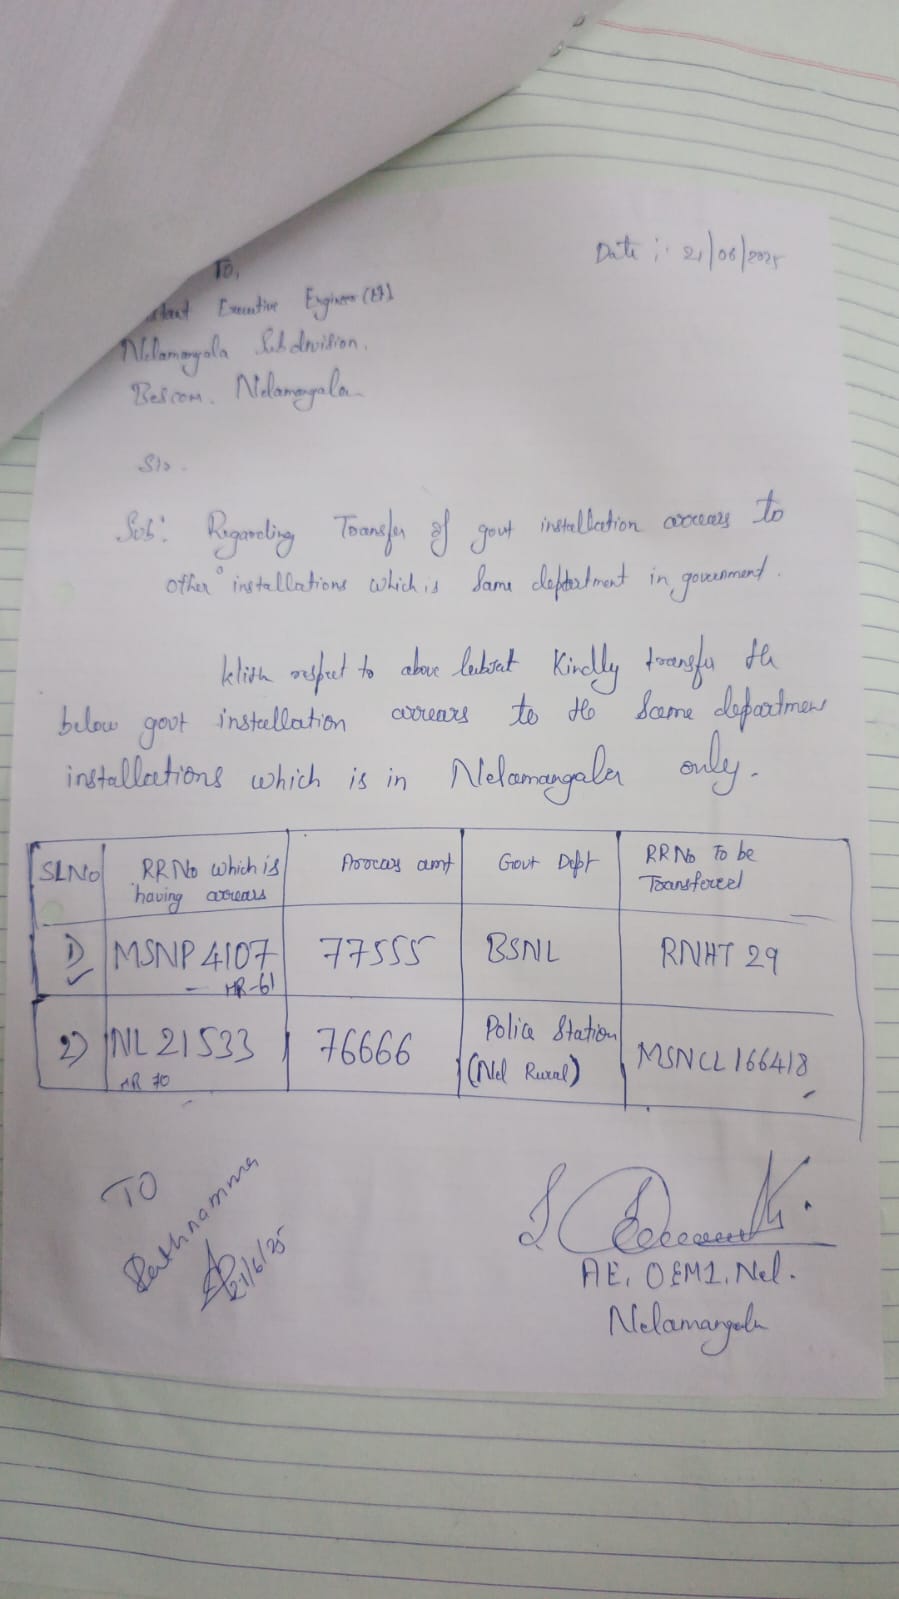 Date : 21/06/2025
To,
Executive Engineer (El)
Nelamangala Subdivision.
Bescom. Nelamangala
Sir.
Sub: Regarding Transfer of govt installation arrears to
other installations which is same department in government.
With respect to above subject Kindly transfer the
below govt installation arrears to the same department
installations which is in Nelamangala only.
SLNo RRNo which is having arrears Arrears amt Govt Dept RRNo To be Transfered
1) MSNP 4107 77555 BSNL RNHT 29
MR-61
2) NL 21533 76666 Police Station (Nel Rural) MSNCL 166418
MR 70
TO
Rathnamma
21/6/25
AE, O&M1, Nel.
Nelamangala